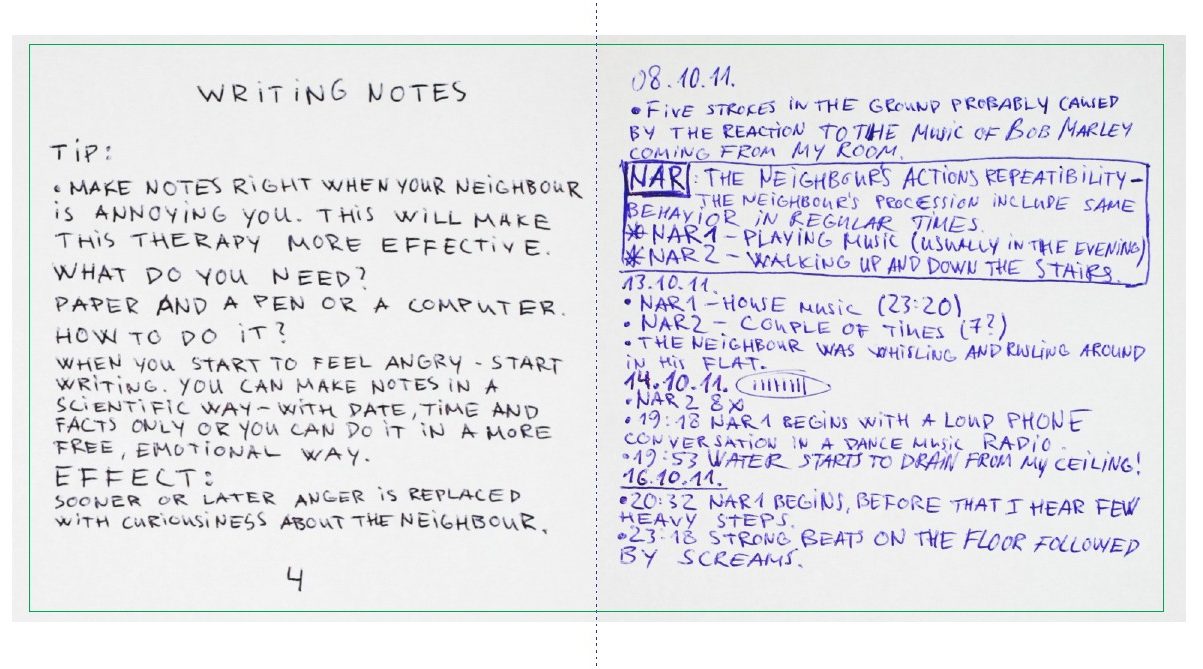 WRITING NOTES
TIP:
• MAKE NOTES RIGHT WHEN YOUR NEIGHBOUR
IS ANNOYING YOU. THIS WILL MAKE
THIS THERAPY MORE EFFECTIVE.
WHAT DO YOU NEED?
PAPER AND A PEN OR A COMPUTER.
HOW TO DO IT?
WHEN YOU START TO FEEL ANGRY - START
WRITING. YOU CAN MAKE NOTES IN A
SCIENTIFIC WAY - WITH DATE, TIME AND
FACTS ONLY OR YOU CAN DO IT IN A MORE
FREE, EMOTIONAL WAY.
EFFECT:
SOONER OR LATER ANGER IS REPLACED
WITH CURIOUSINESS ABOUT THE NEIGHBOUR.
4
08.10.11.
• FIVE STROKES IN THE GROUND PROBABLY CAUSED
BY THE REACTION TO THE MUSIC OF BOB MARLEY
COMING FROM MY ROOM.
NAR: THE NEIGHBOUR'S ACTIONS REPEATIBILITY -
THE NEIGHBOUR'S PROCESSION INCLUDE SAME
BEHAVIOR IN REGULAR TIMES.
* NAR1 - PLAYING MUSIC (USUALLY IN THE EVENING)
* NAR2 - WALKING UP AND DOWN THE STAIRS.
13.10.11.
• NAR1 - HOUSE MUSIC (23:20)
• NAR2 - COUPLE OF TIMES (7?)
• THE NEIGHBOUR WAS WHISLING AND RULING AROUND
IN HIS FLAT.
14.10.11.
• NAR2 8x
• 19:18 NAR1 BEGINS WITH A LOUD PHONE
CONVERSATION IN A DANCE MUSIC RADIO.
• 19:53 WATER STARTS TO DRAIN FROM MY CEILING!
16.10.11.
• 20:32 NAR1 BEGINS, BEFORE THAT I HEAR FEW
HEAVY STEPS.
• 23:18 STRONG BEATS ON THE FLOOR FOLLOWED
BY SCREAMS.